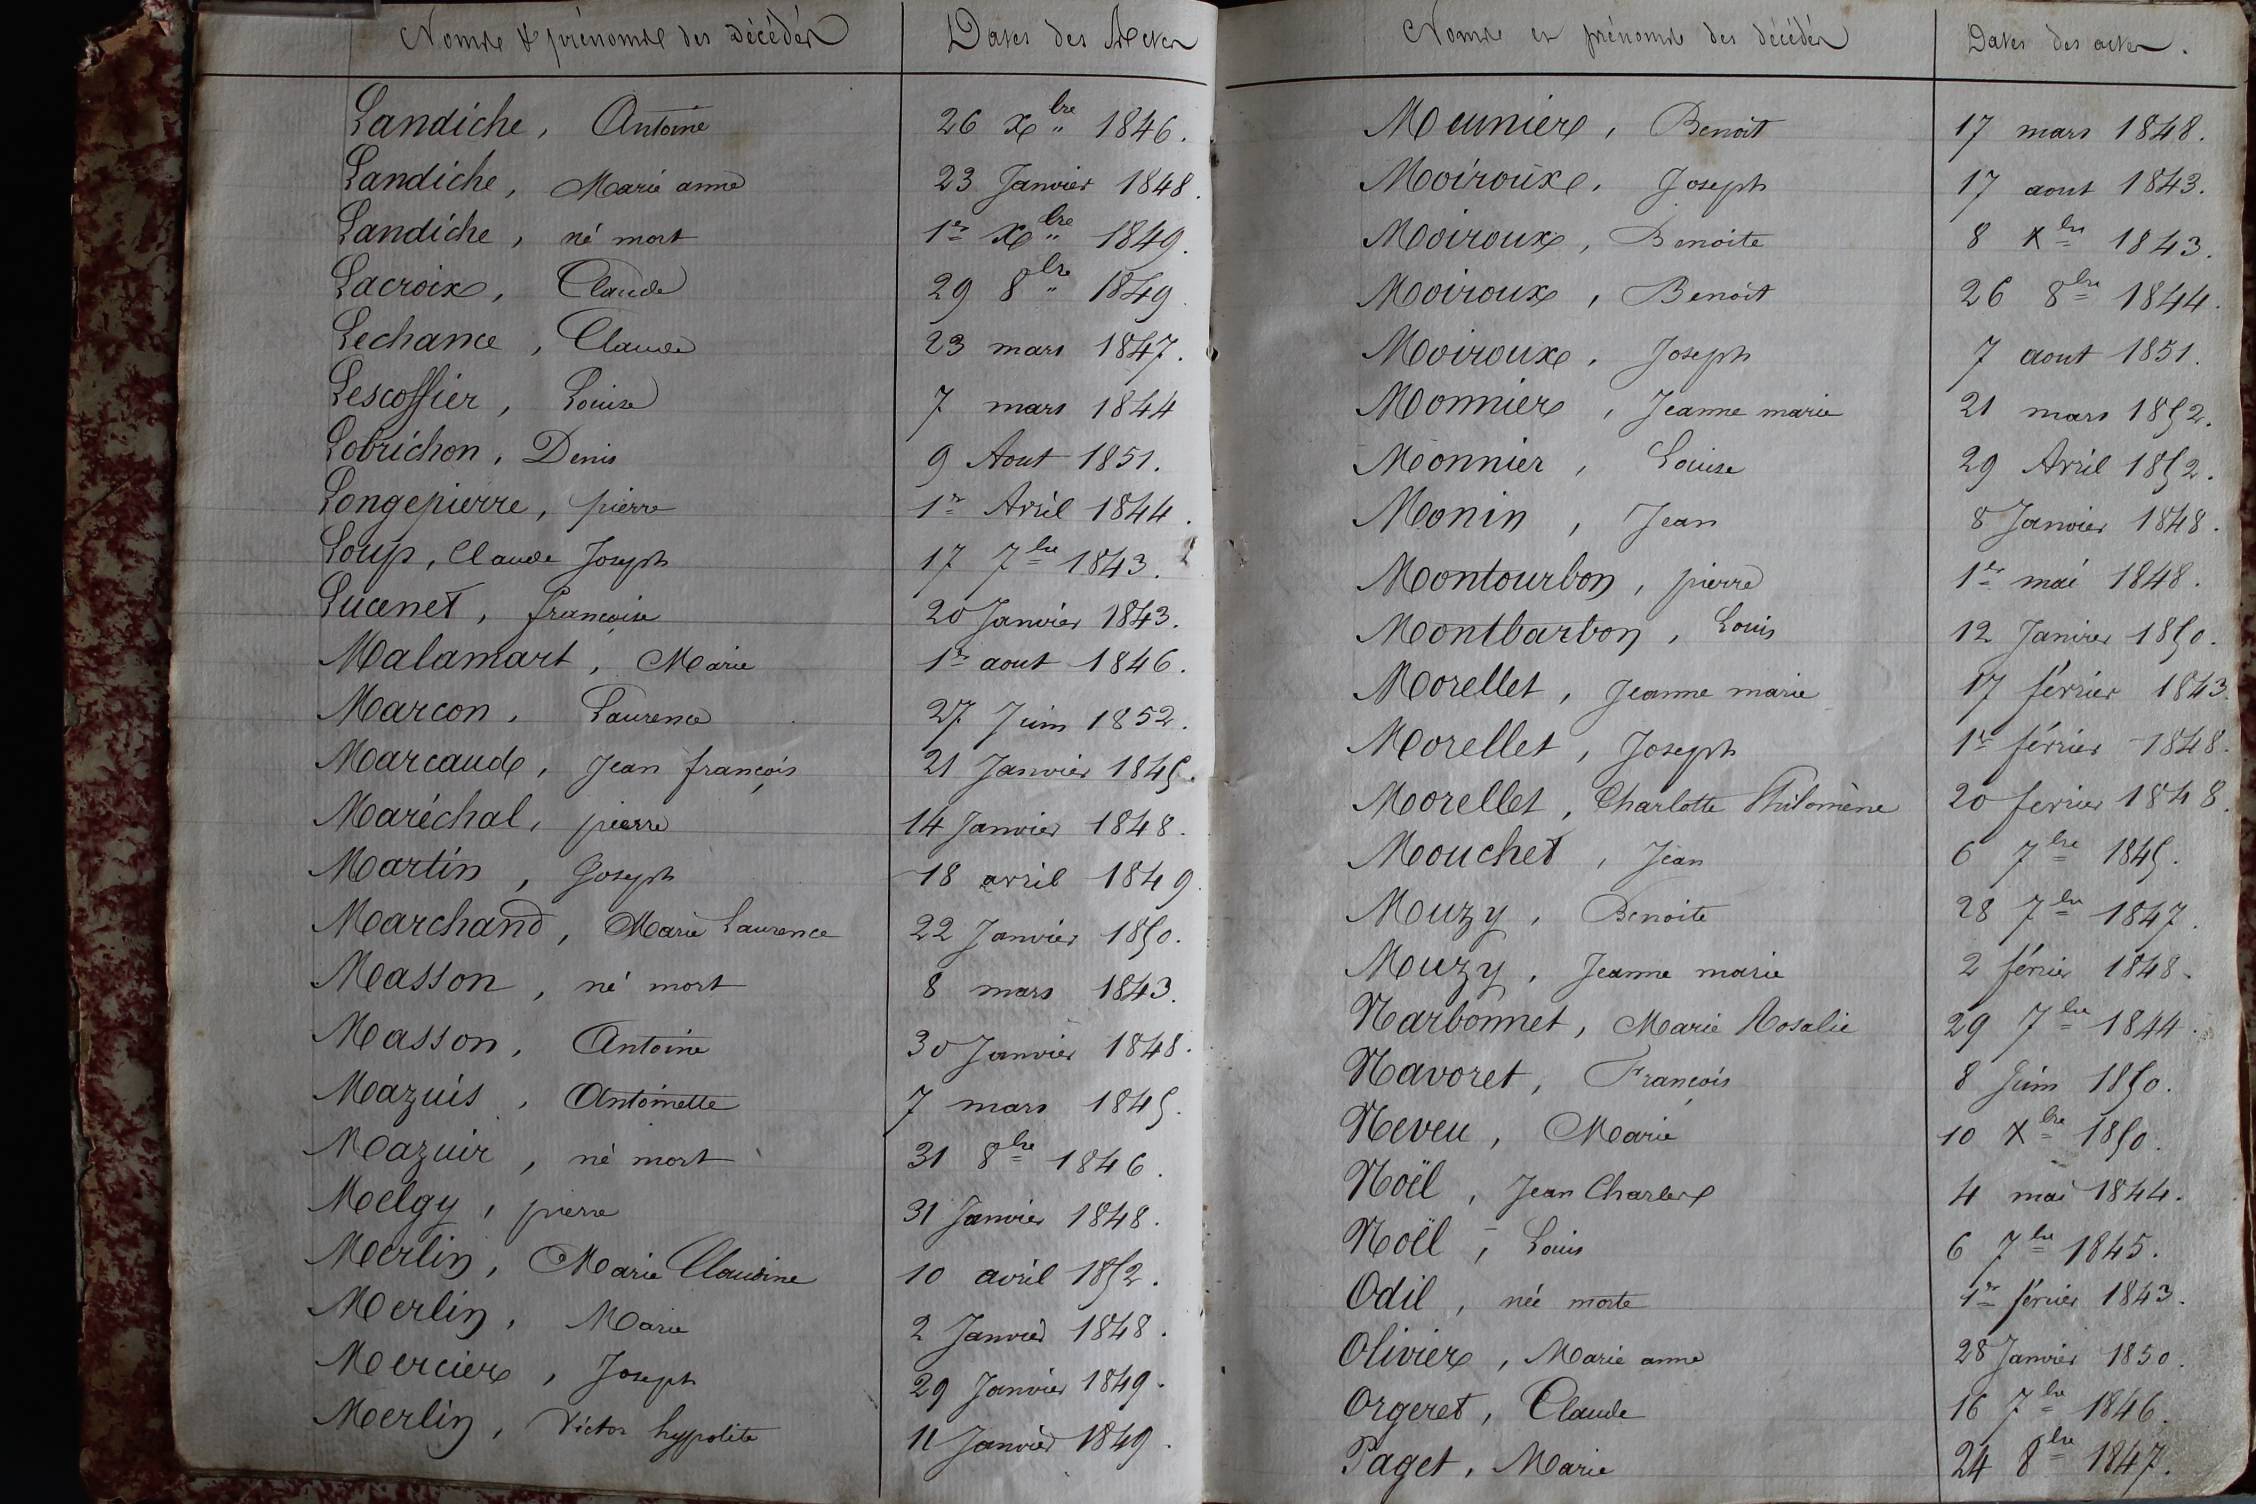 Noms & prénoms des décédés Dates des Actes
Landiche, Antoine 26 Xbre 1846.
Landiche, Marie anne 23 Janvier 1848.
Landiche, né mort 1er Xbre 1849.
Lacroix, Claude 29 8bre 1849.
Lechance, Claude 23 mars 1847.
Lescoffier, Louise 7 mars 1844
Lobrichon, Denis 9 Aout 1851.
Longepierre, pierre 1er Avril 1844.
Loup, Claude Joseph 17 7bre 1843.
Lucenet, françoise 20 Janvier 1843.
Malamart, Marie 1er aout 1846.
Marcon, Laurence 27 Juin 1852.
Marcaud, Jean françois 21 Janvier 1845.
Maréchal, pierre 14 Janvier 1848.
Martin, Joseph 18 avril 1849.
Marchand, Marie Laurence 22 Janvier 1850.
Masson, né mort 8 mars 1843.
Masson, Antoine 30 Janvier 1848.
Mazuis, Antoinette 7 mars 1845.
Mazuir, né mort 31 8bre 1846.
Melgy, pierre 31 Janvier 1848.
Merlin, Marie Claudine 10 avril 1852.
Merlin, Marie 2 Janvier 1848.
Mercier, Joseph 29 Janvier 1849.
Merlin, Victor hyppolite 11 Janvier 1849.
Noms et prénoms des décédés Dates des actes.
Meunier, Benoit 17 mars 1848.
Moiroux, Joseph 17 aout 1843.
Moiroux, Benoite 8 Xbre 1843.
Moiroux, Benoit 26 8bre 1844.
Moiroux, Joseph 7 aout 1851.
Monnier, Jeanne marie 21 mars 1852.
Monnier, Louise 29 Avril 1852.
Monin, Jean 8 Janvier 1848.
Montourbon, pierre 1er mai 1848.
Montbarbon, Louis 12 Janvier 1850.
Morellet, Jeanne marie 17 février 1843.
Morellet, Joseph 1er février 1848.
Morellet, Charlotte Philomène 20 fevrier 1848.
Mouchet, Jean 6 7bre 1845.
Muzy, Benoite 28 7bre 1847.
Muzy, Jeanne marie 2 février 1848.
Narbonnet, Marie Rosalie 29 7bre 1844.
Navoret, François 8 Juin 1850.
Neveu, Marie 10 Xbre 1850.
Noël, Jean Charles 4 mai 1844.
Noël, Louis 6 7bre 1845.
Odil, née morte 1er février 1843.
Olivier, Marie anne 28 Janvier 1850.
Orgeret, Claude 16 7bre 1846.
Paget, Marie 24 8bre 1847.